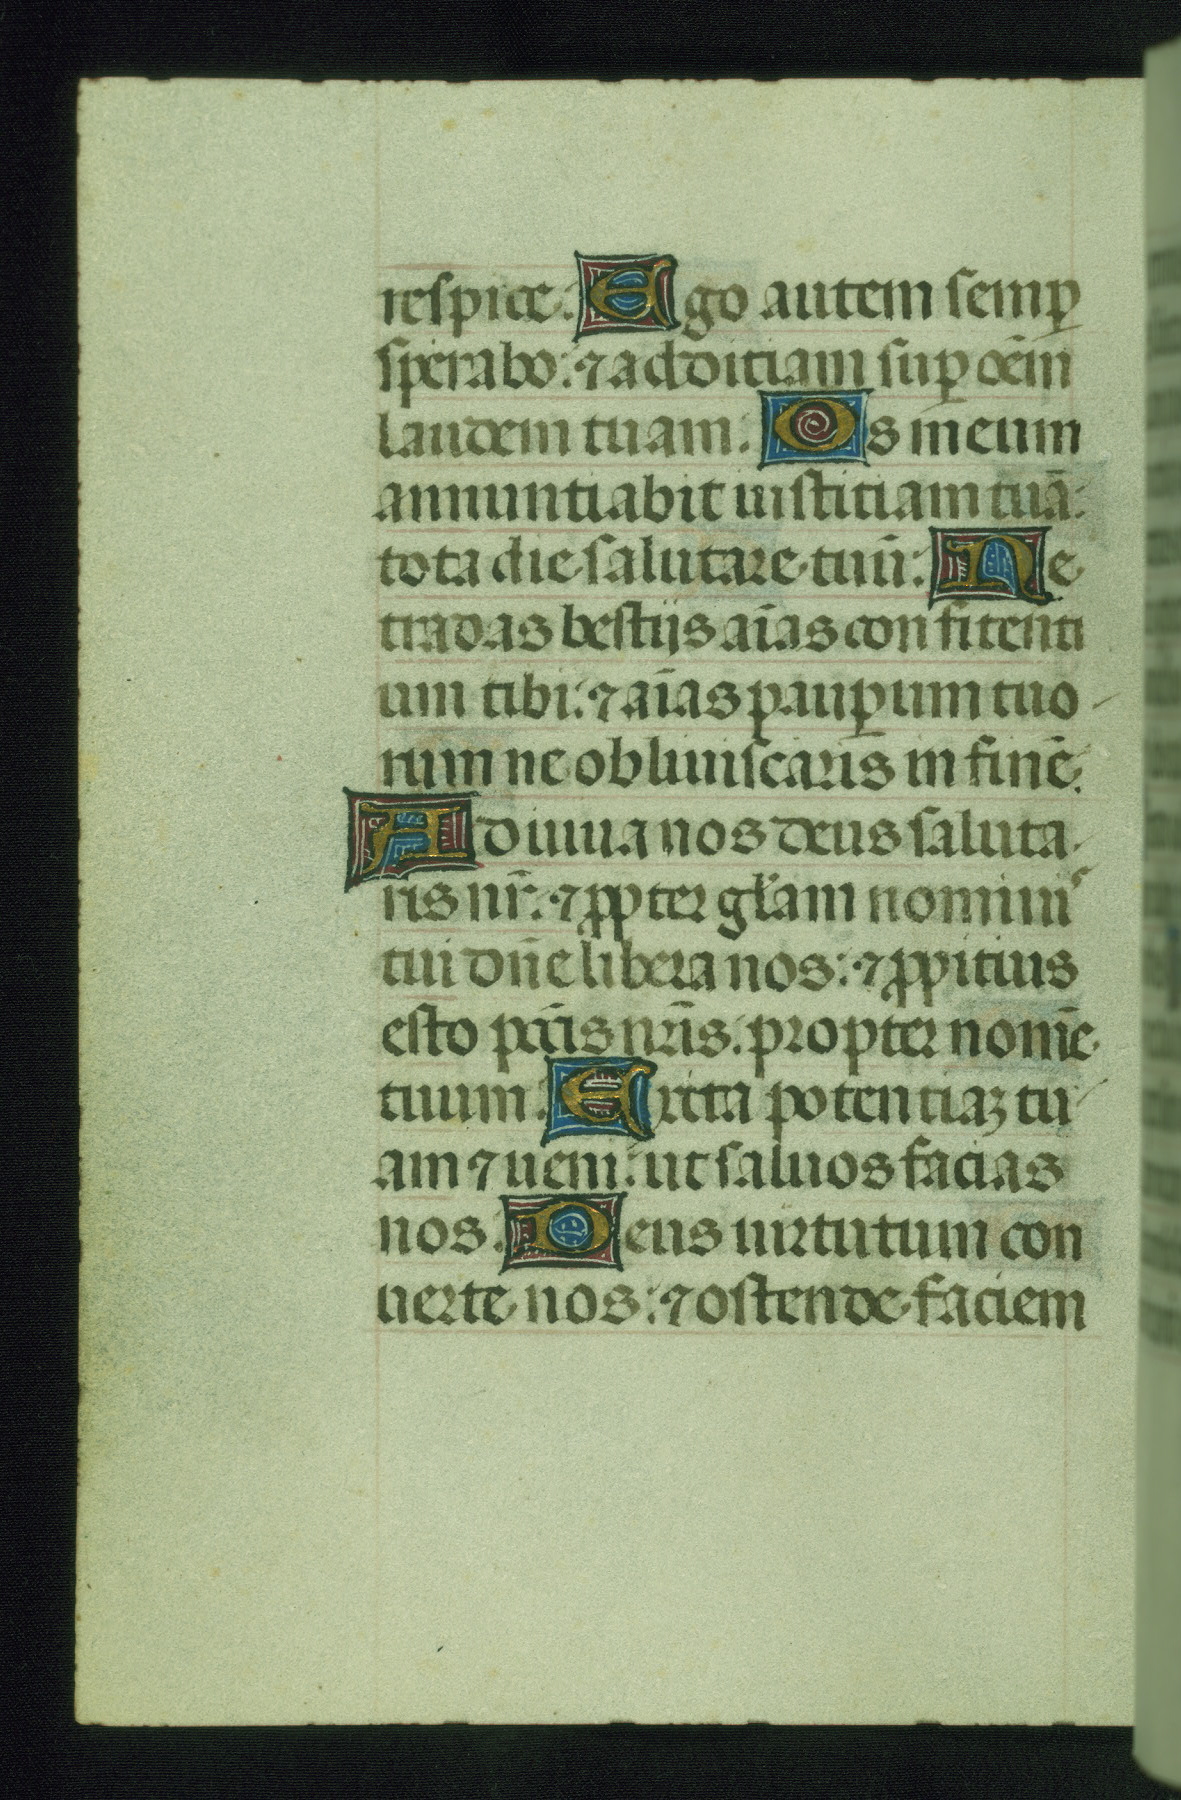 respice. Ego autem semꝑ
sperabo: ⁊ additiam suꝑ oēm
laudem tuam. Os meum
annuntiabit iustitiam tuā:
tota die salutare tuū: Ne
tradas bestijs aīas confitenti
um tibi: ⁊ aīas pauꝑum tuo
rum ne obliuiscaris in finē.
Adiuua nos deus saluta
ris nr̄: ⁊ ꝓpter gl̄am nominiˢ
tui dn̄e libera nos: ⁊ ꝓpitius
esto pctīs nr̄is: propter nomē
tuum. Exita potentiaꝫ tu
am ⁊ ueni: ut saluos facias
nos. Deus uirtutum con
uerte nos: ⁊ ostende faciem